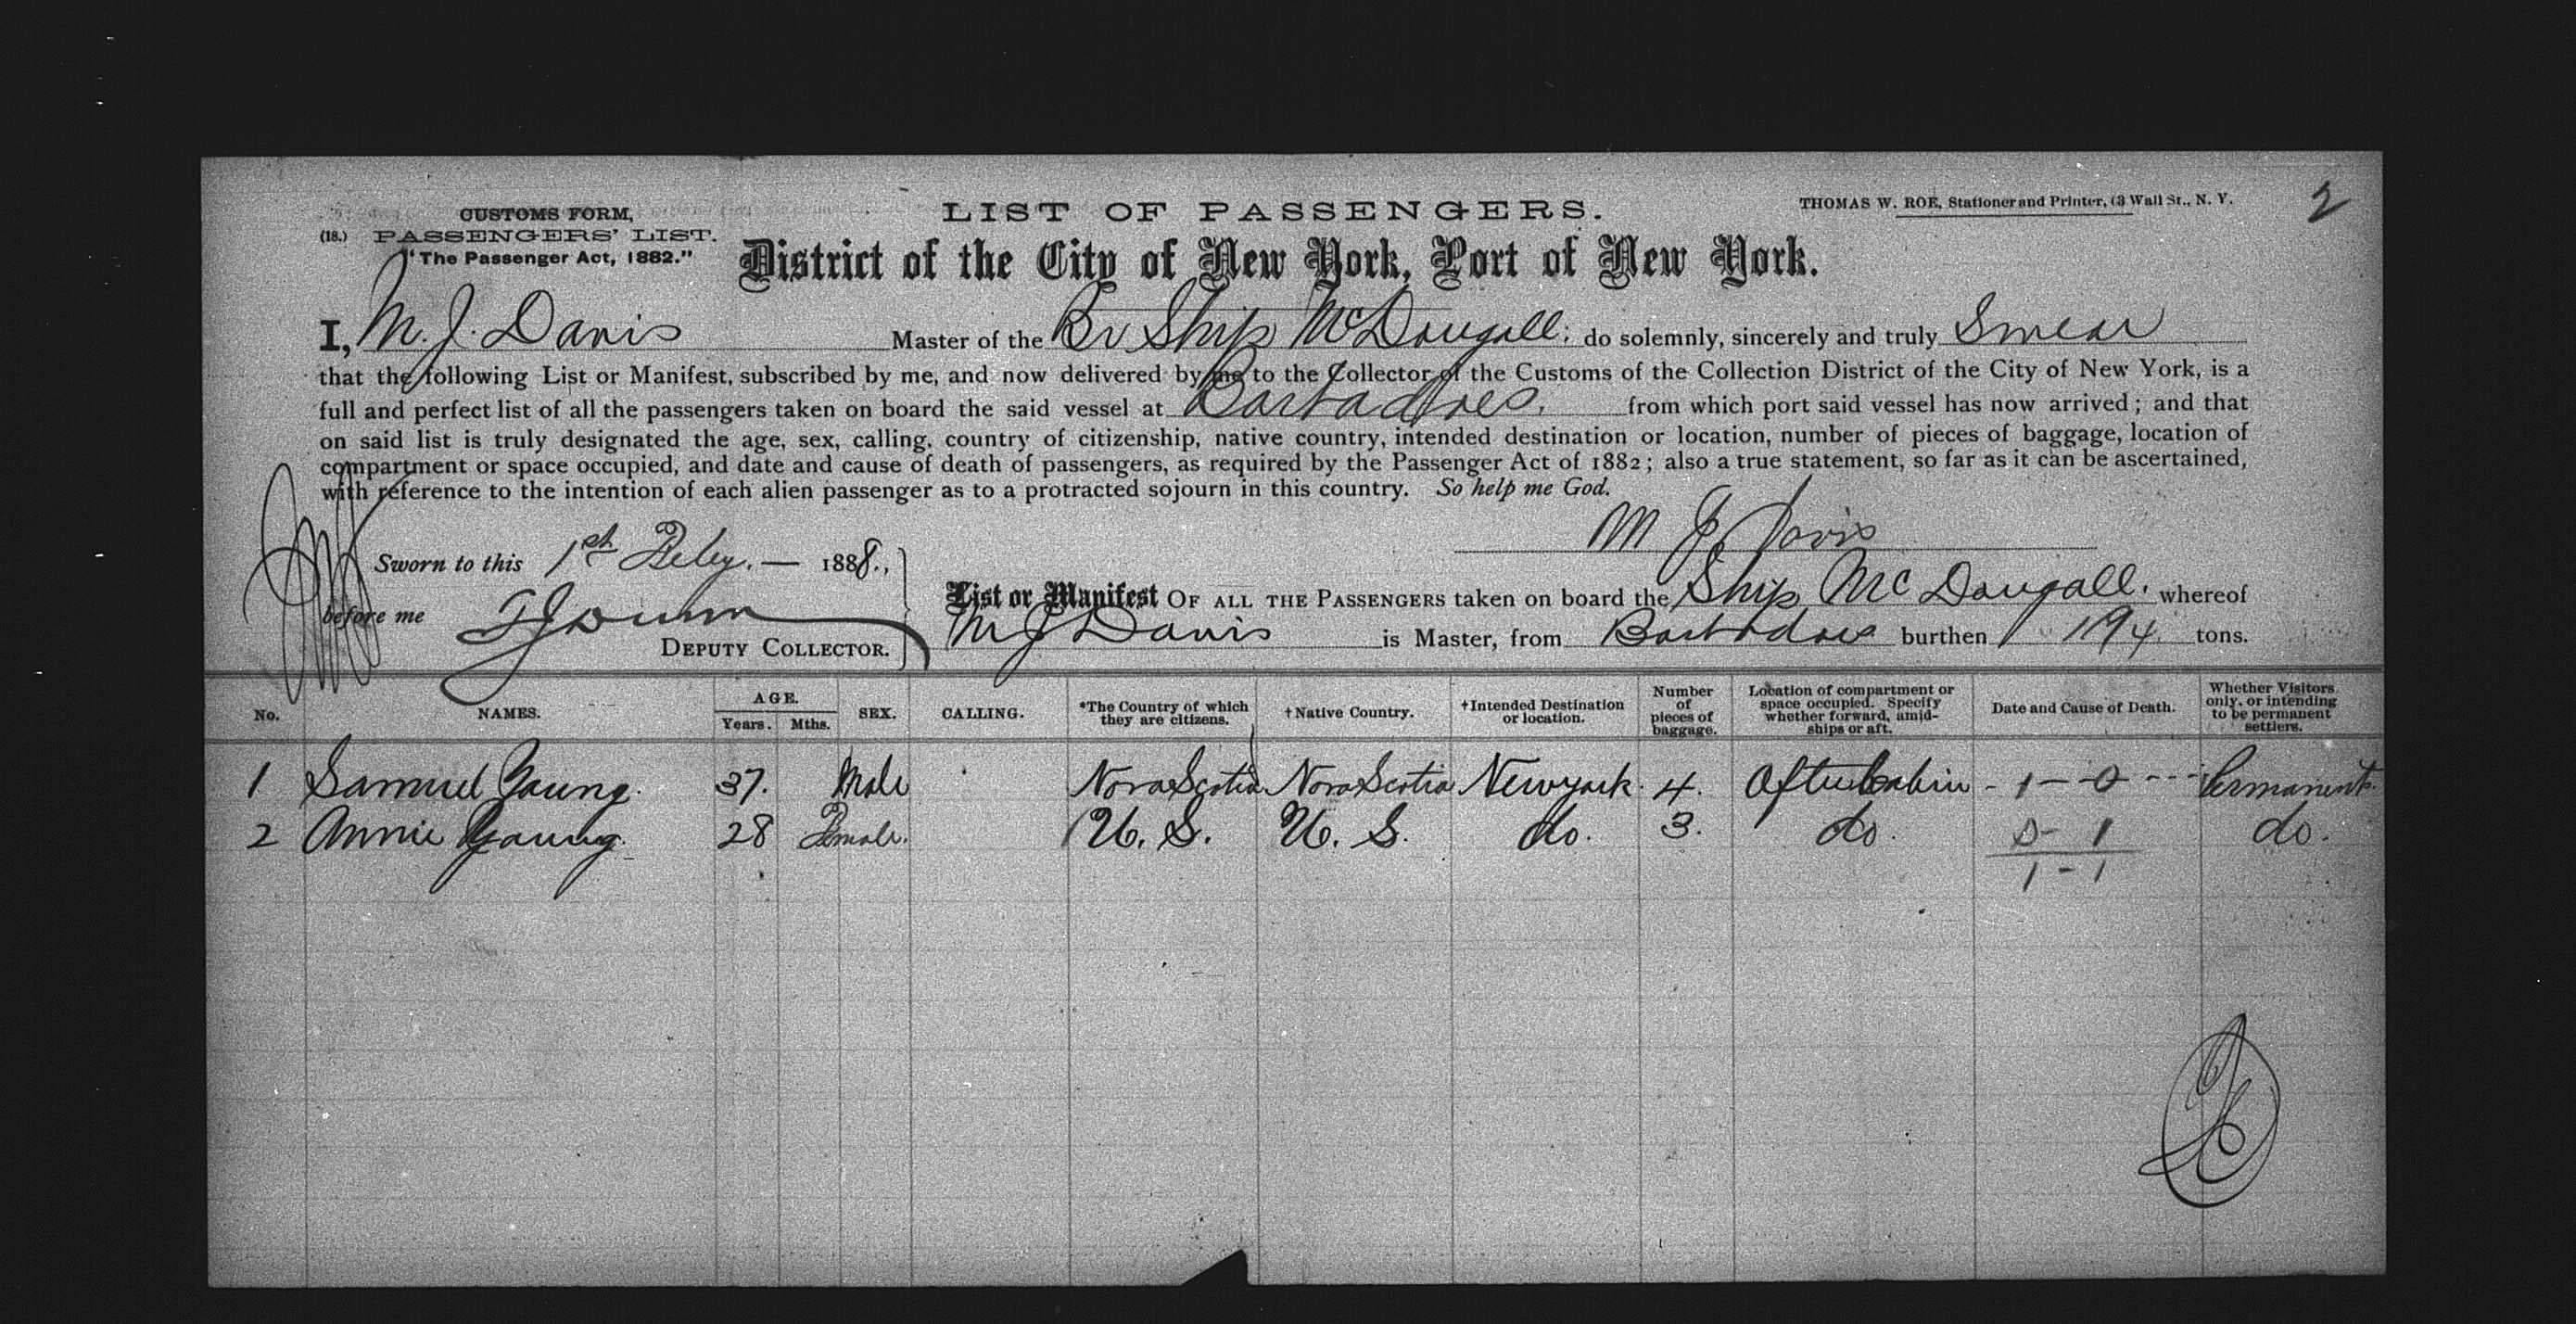 CUSTOMS FORM,
(18.) PASSENGERS' LIST.
"The Passenger Act, 1882."
LIST OF PASSENGERS.
THOMAS W. ROE, Stationer and Printer, 63 Wall St., N. Y.
2
District of the City of New York, Port of New York.
I, M. J. Davis Master of the Br Ship McDougall. do solemnly, sincerely and truly Swear
that the following List or Manifest, subscribed by me, and now delivered by me to the Collector of the Customs of the Collection District of the City of New York, is a
full and perfect list of all the passengers taken on board the said vessel at Barbadoes. from which port said vessel has now arrived; and that
on said list is truly designated the age, sex, calling, country of citizenship, native country, intended destination or location, number of pieces of baggage, location of
compartment or space occupied, and date and cause of death of passengers, as required by the Passenger Act of 1882; also a true statement, so far as it can be ascertained,
with reference to the intention of each alien passenger as to a protracted sojourn in this country. So help me God.
M J Davis
Sworn to this 1st Feby. — 1888.,
before me
DEPUTY COLLECTOR.
List or Manifest OF ALL THE PASSENGERS taken on board the Ship McDougall. whereof
M J Davis is Master, from Barbadoes burthen 1194 tons.
No. NAMES. AGE. Years. Mths. SEX. CALLING. *The Country of which they are citizens. †Native Country. †Intended Destination or location. Number of pieces of baggage. Location of compartment or space occupied. Specify whether forward, amidships or aft. Date and Cause of Death. Whether Visitors only, or intending to be permanent settlers.
1 Samuel Young. 37. Male Nova Scotia Nova Scotia New york. 4. After Cabin - 1 - - 0 - - - Permanent.
2 Annie Young. 28 Female. U. S. U. S. do. 3. do. 0 - 1 do.
1 - 1